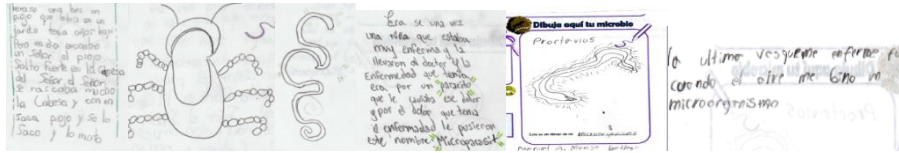 Erase una ves un
piojo que
jardin
Para
un Señor el piojo
Salto fuerte en la Cabeza
del Señor el Señor
se rascaba mucho
la Cabeza y con un
Saca piojo y se lo
Saco y lo mato
Era se una ves
una niña que estaba
muy enferma y la
llevaron al doctor y la
Enfermedad que tenia
era por un parasito
que le causaba ese dolor
y por el dolor que tenia
la enfermedad le pusieron
este nombre "Microparasit
Dibuja aquí tu microbio
Proctovios
Este es un dibujo de un
Manuel A.
la ultima ves que me enferme f
cuando el aire me bino un
microorganismo